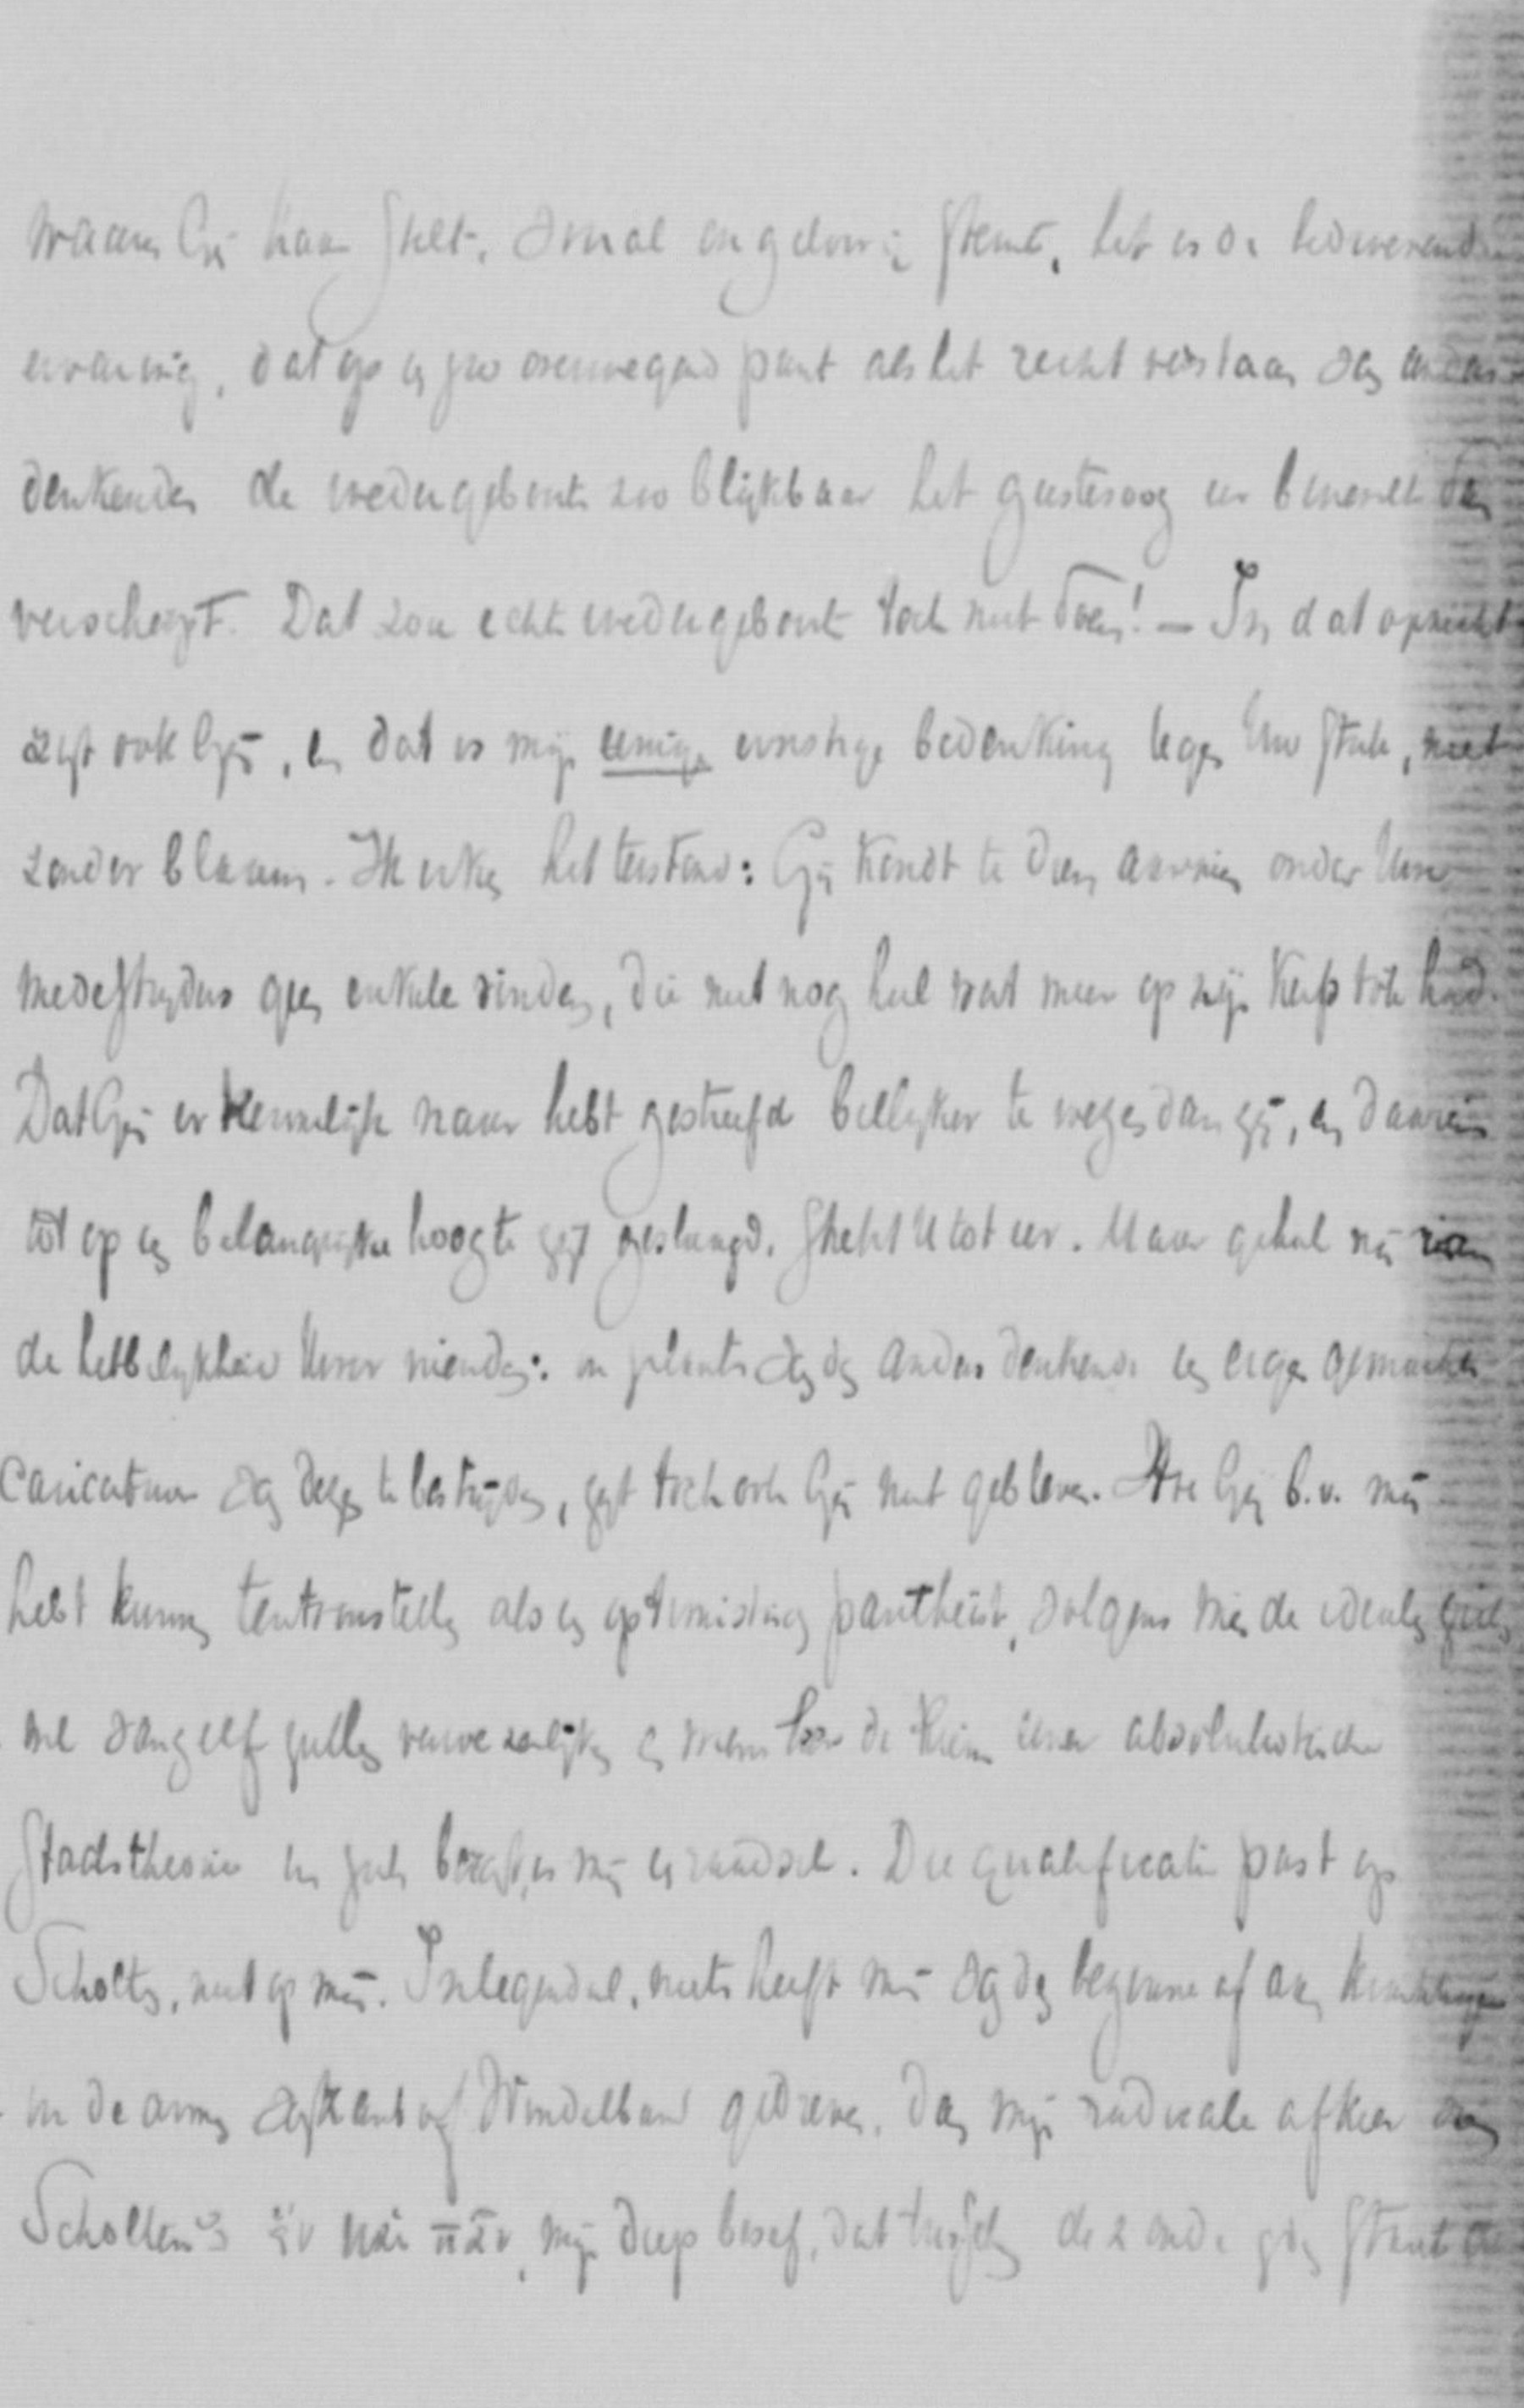 waarin Gij haar stelt, vooral ongeloovig stemt, het is de bedroevende
ervaring, dat op zoo overwegend punt als het recht verstaan van anders-
denkenden de wedergeboorte zoo blijkbaar het geestesoog eer benevelt dan
verscherpt. Dat zou echte wedergeboorte toch niet doen! — In dat opzicht
zijt ook Gij, en dat is mijn eenige ernstige bedenking tegen Uw stuk, niet
zonder blaam. Ik erken het terstond: Gij kendt te dien aanzien onder Uwe
medestrijders geen enkele vinden, die niet nog heel wat meer op zijn kerfstok had.
Dat Gij er kennelijk naar hebt gestreefd billijker te wegen dan zij, en daarin
tot op een belangrijke hoogte zijt geslaagd, strekt U tot eer. Maar geheel vrij van
de hebbelijkheid Uwer vrienden: in plaats van den andersdenkende een eigen gemaakte
caricatuur van dezen te bestrijden, zijt toch ook Gij niet gebleven. Hoe Gij b.v. mij
hebt kunnen tentoonstellen als een optimistisch pantheist, volgens wien de idealen zich
wel vanzelf zullen verwezenlijken en in wien de kiem eener absolutistische
Staatstheorie in zich bergt, is mij een raadsel. Die qualificatie past op
Scholten, niet op mij. Integendeel, niets heeft mij van den beginne af aan
in de armen van Kant of Windelband gedreven, dan mijn radicale afkeer van
Scholten's ἓν καὶ πᾶν, mijn diep besef, dat tusschen de zonde